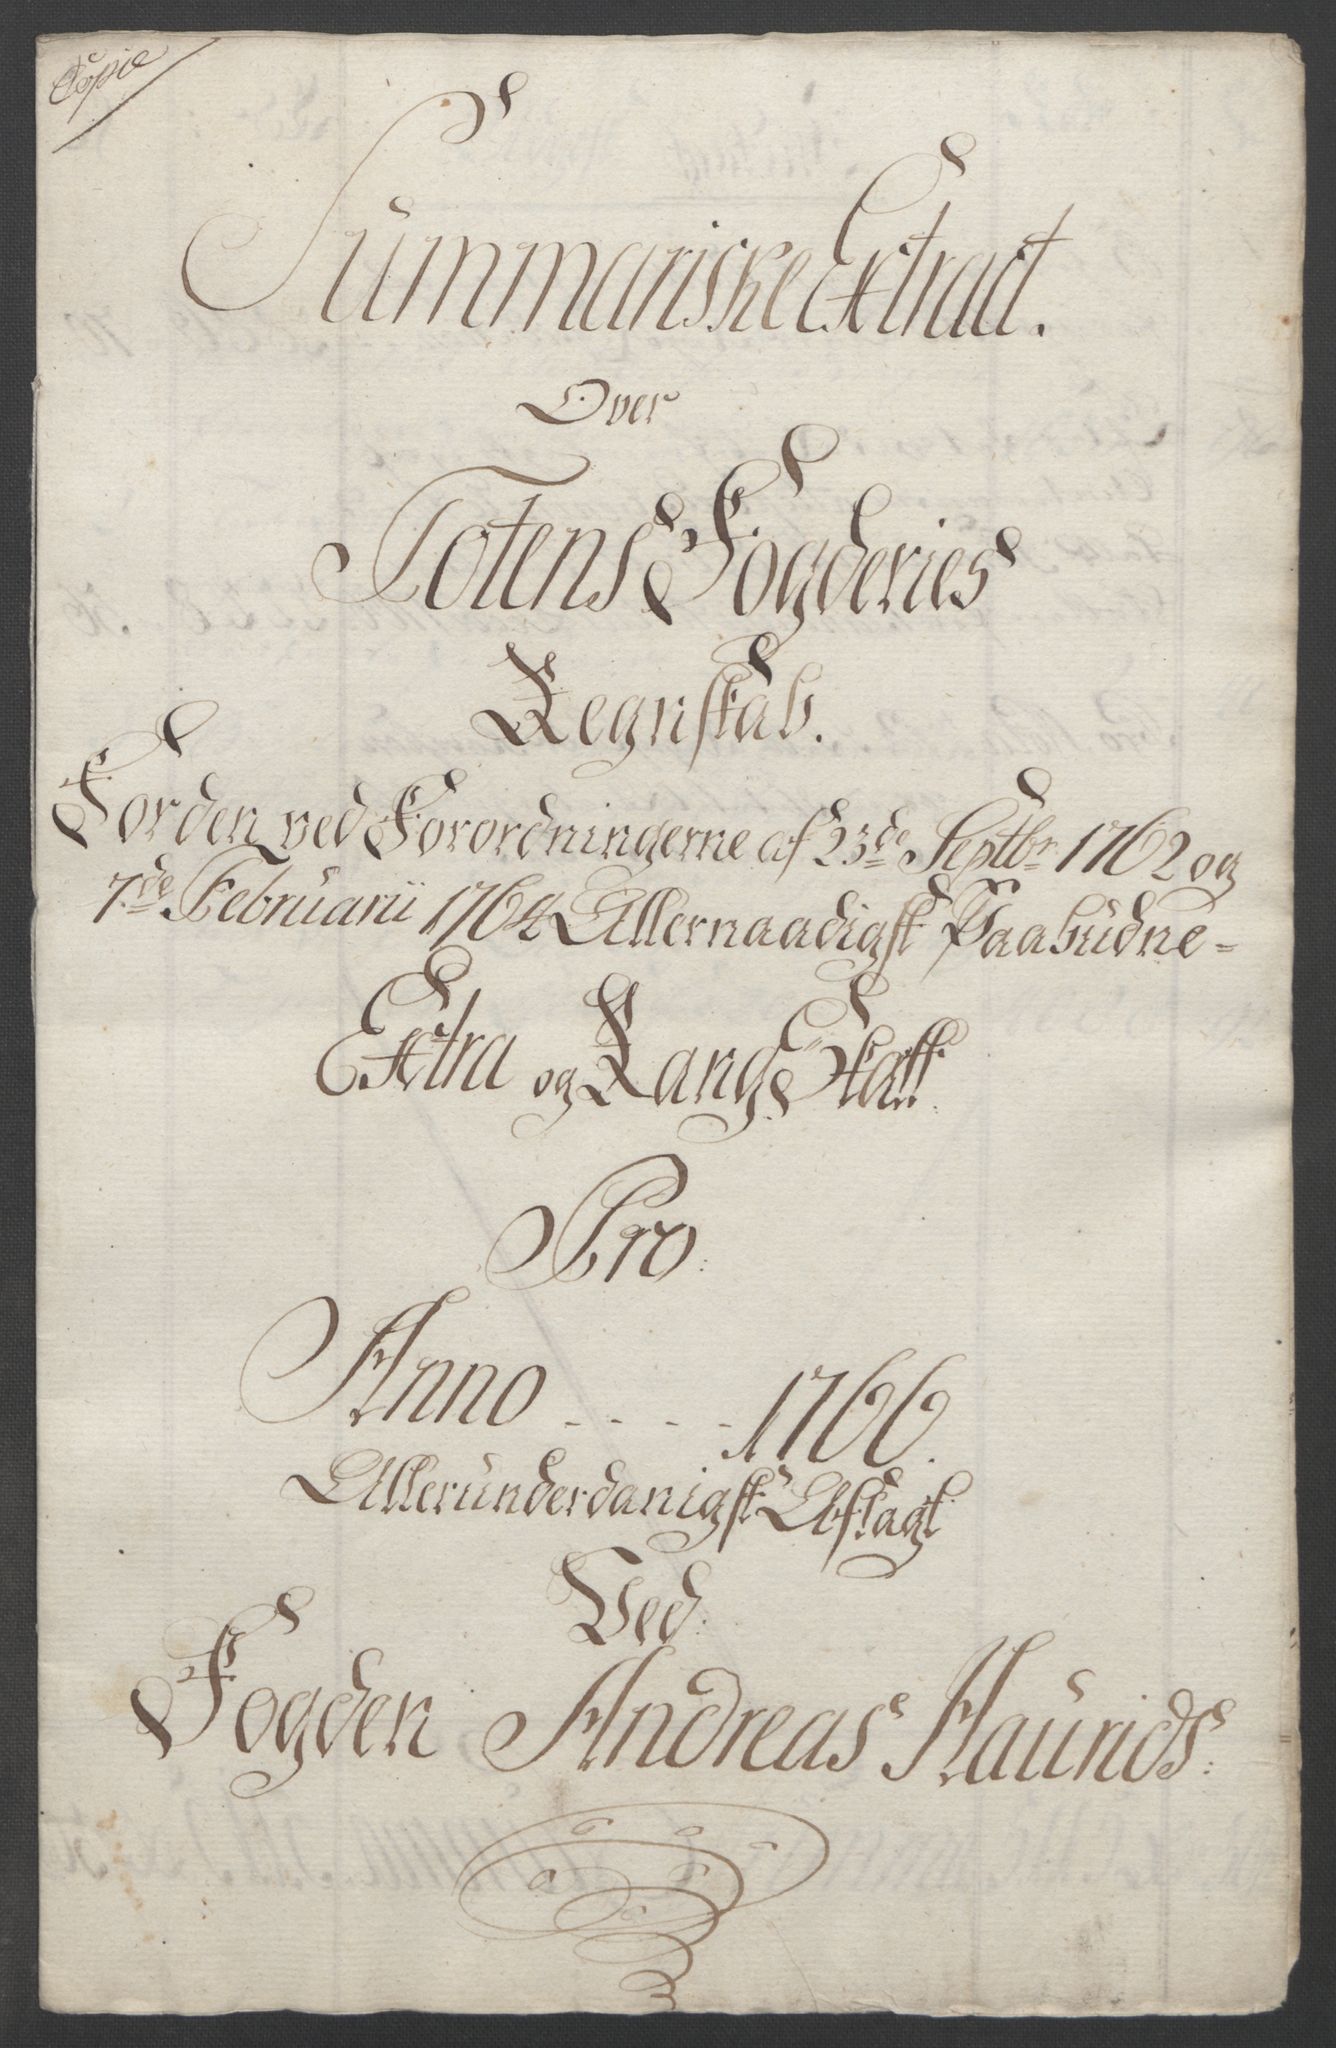 Copie
Summariske Extract.
Over
Totens Fogderies
Regnskab.
For den ved Forordningerne af 23de Septbr. 1762 og
7de Februarii 1764 Allernaadigst Paabudne-
Extra og Rang Skatt.
Pro.
Anno - - - - 1766.
Allerunderdanigst Aflagt
Ved.
Fogden Andreas Haurids.